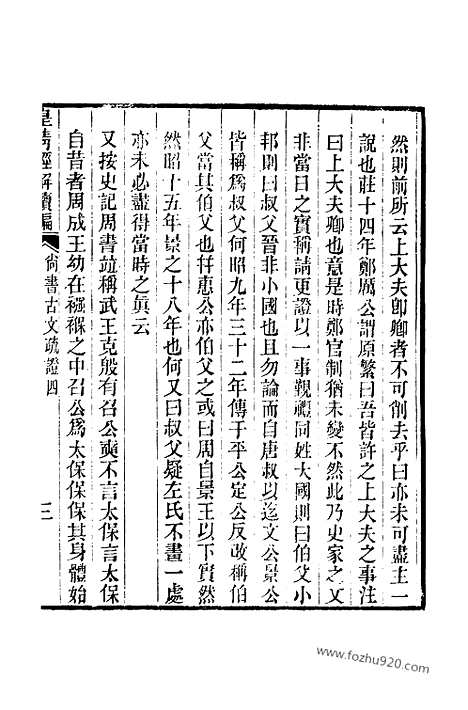 然則前所云上大夫卽卿者不可削去乎曰亦未可盡主一
說也莊十四年鄭厲公謂原繁曰吾皆許之上大夫之事注
曰上大夫卿也意是時鄭官制猶未變不然此乃史家之文
非當日之實稱請更證以一事覲禮同姓大國則曰伯父小
邦則曰叔父晉非小國也且勿論而自唐叔以迄文公景公
皆稱爲叔父何昭九年三十二年傳于平公定公反改稱伯
父當其伯父也幷惠公亦伯父之或曰周自景王以下實然
然昭十五年景之十八年也何又曰叔父疑左氏不畫一處
亦未必盡得當時之眞云
又按史記周書竝稱武王克殷有召公奭不言太保言太保
自昔者周成王幼在襁褓之中召公爲太保保保其身體始
皇清經解續編
尙書古文疏證四
三
www.fozhu920.com